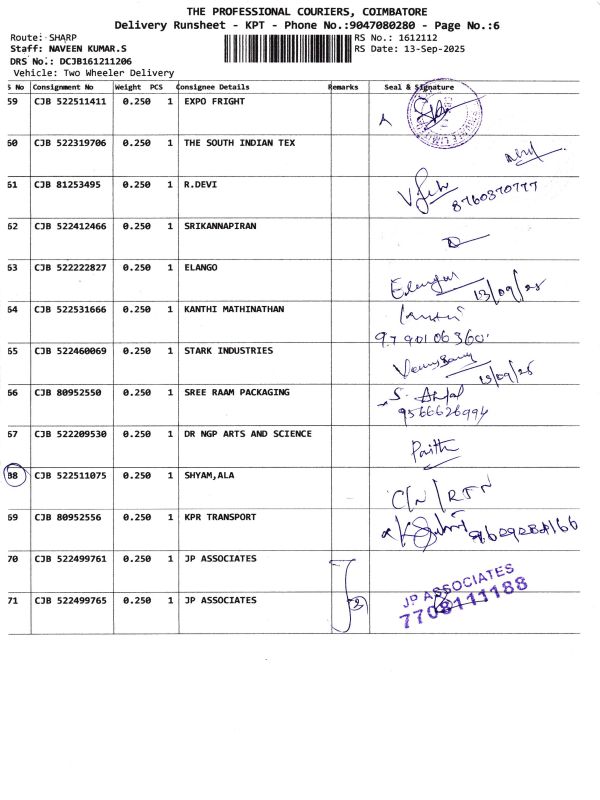 THE PROFESSIONAL COURIERS, COIMBATORE
Delivery Runsheet - KPT - Phone No.:9047080280 - Page No.:6
Route: SHARP RS No.: 1612112
Staff: NAVEEN KUMAR.S RS Date: 13-Sep-2025
DRS No.: DCJB161211206
Vehicle: Two Wheeler Delivery
S No Consignment No Weight PCS Consignee Details Remarks Seal & Signature
59 CJB 522511411 0.250 1 EXPO FRIGHT
60 CJB 522319706 0.250 1 THE SOUTH INDIAN TEX
61 CJB 81253495 0.250 1 R.DEVI
8760370777
62 CJB 522412466 0.250 1 SRIKANNAPIRAN
63 CJB 522222827 0.250 1 ELANGO
13/09/25
64 CJB 522531666 0.250 1 KANTHI MATHINATHAN
9790106360
65 CJB 522460069 0.250 1 STARK INDUSTRIES
13/09/25
66 CJB 80952550 0.250 1 SREE RAAM PACKAGING
9566626994
67 CJB 522209530 0.250 1 DR NGP ARTS AND SCIENCE
68 CJB 522511075 0.250 1 SHYAM,ALA
C/N/RTN
69 CJB 80952556 0.250 1 KPR TRANSPORT
70 CJB 522499761 0.250 1 JP ASSOCIATES
71 CJB 522499765 0.250 1 JP ASSOCIATES
2
JP ASSOCIATES
7708111188